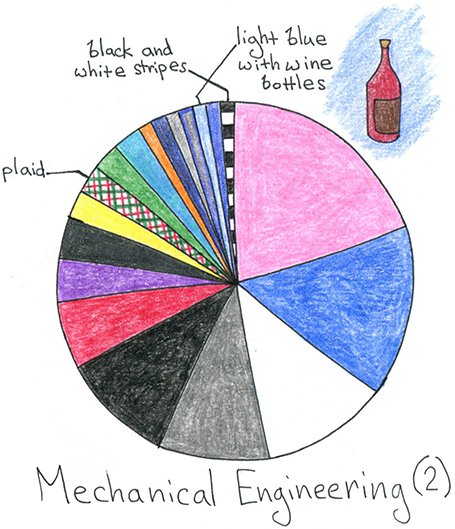 black and
white stripes
light blue
with wine
bottles
plaid
Mechanical Engineering (2)